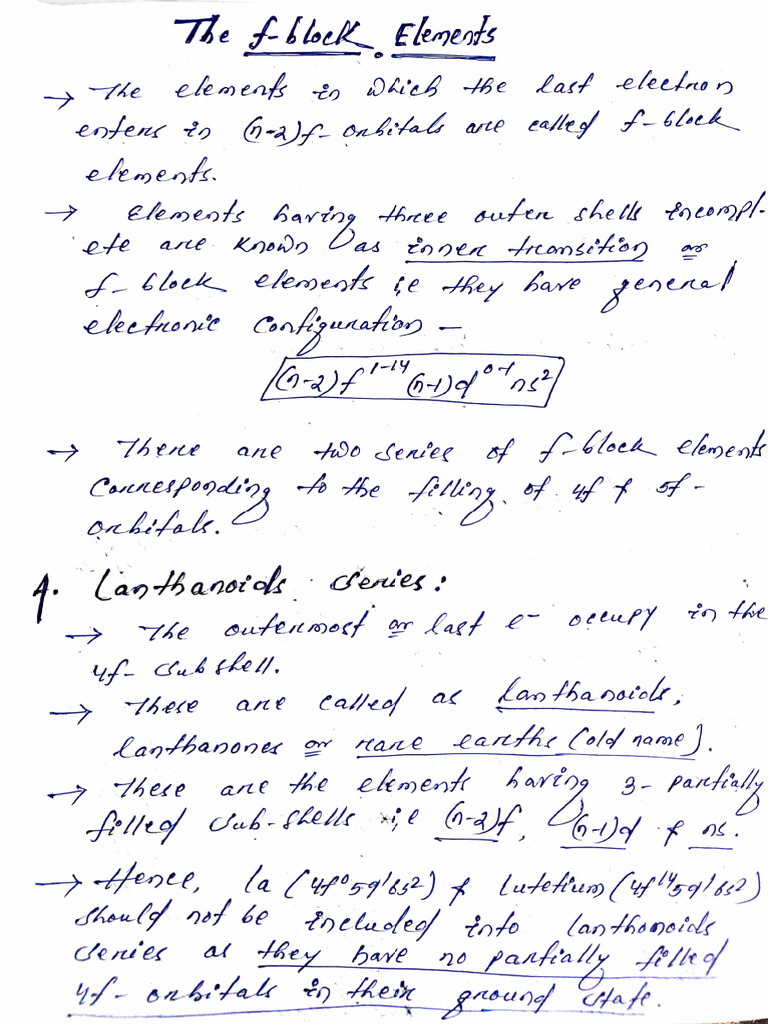 The f-block Elements
→ The elements in which the last electron
enters in (n-2)f-orbitals are called f-block
elements.
→ Elements having three outer shells incompl-
ete are known as inner transition or
f-block elements i,e they have general
electronic configuration –
(n-2)f¹⁻¹⁴(n-1)d⁰⁻¹ns²
→ There are two series of f-block elements
corresponding to the filling of 4f & 5f-
orbitals.
1. Lanthanoids series:
→ The outermost or last e⁻ occupy in the
4f-subshell.
→ These are called as lanthanoids,
lanthanones or rare earths (old name).
→ These are the elements having 3-partially
filled sub-shells i,e (n-2)f, (n-1)d & ns.
→ Hence, La (4f⁰5d¹6s²) & lutetium (4f¹⁴5d¹6s²)
should not be included into lanthonoids
series as they have no partially filled
4f-orbitals in their ground state.